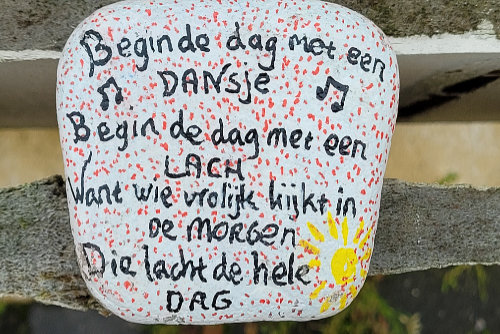 Begin de dag met een
DANSje
Begin de dag met een
LACH
Want wie vrolijk kijkt in
DE MORGEN
Die lacht de hele
DAG